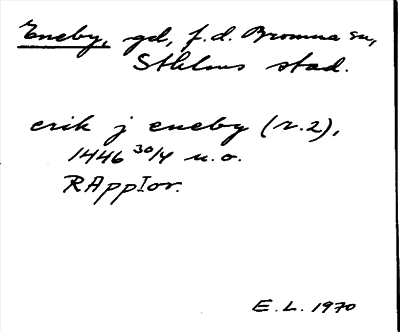 Eneby, gd, f.d. Bromma sn,
Sthlms stad.
erik j eneby (r.2),
1446 30/4 u.o.
RAppIor.
E.L. 1970